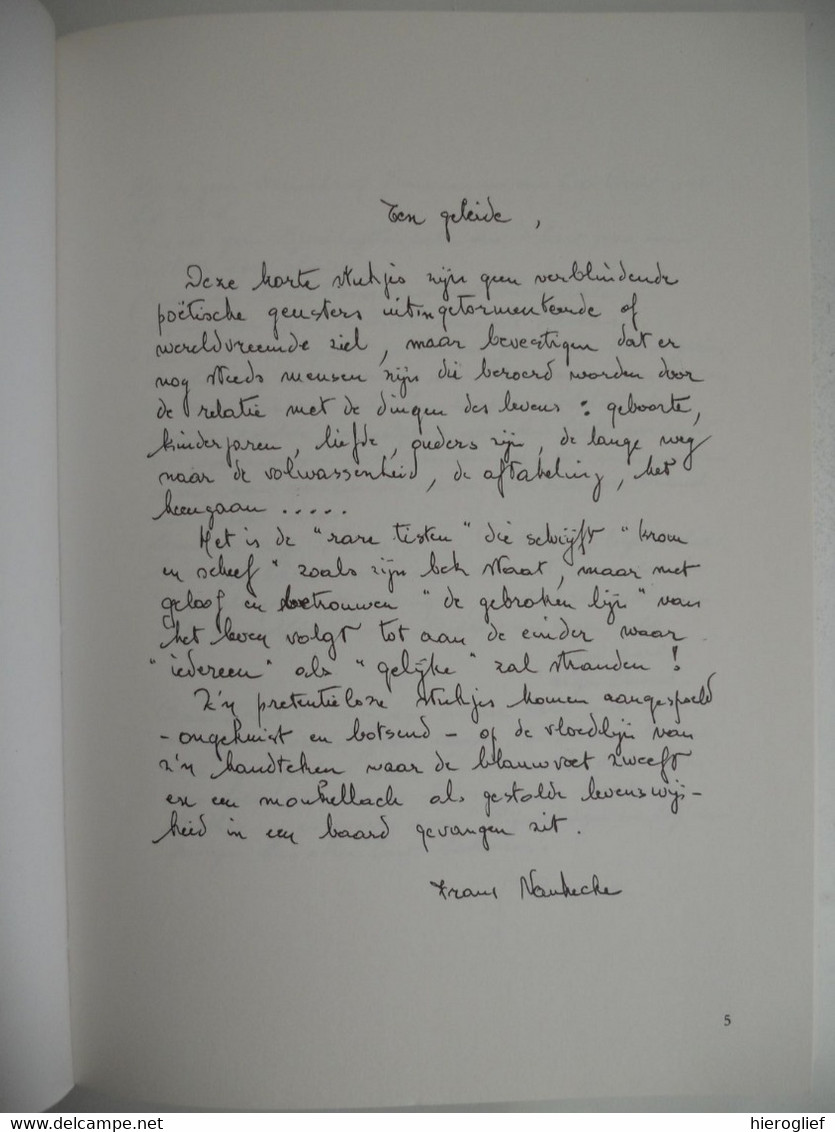 Ten geleide,
Deze korte stukjes zijn geen verblindende
poëtische gensters uit 'n getormenteerde of
wereldvreemde ziel, maar bevestigen dat er
nog steeds mensen zijn die beroerd worden door
de relatie met de dingen des levens : geboorte,
kinderjaren, liefde, ouders zijn, de lange weg
naar de volwassenheid, de aftakeling, het
heengaan .....
Het is de "rare tisten" die schrijft "krom
en scheef" zoals zijn bek staat, maar met
geloof en betrouwen "de gebroken lijn" van
het leven volgt tot aan de einder waar
"iedereen" als "gelijke" zal stranden !
Z'n pretentieloze stukjes komen aangespoeld
- ongekuist en botsend - op de vloedlijn van
z'n handteken waar de blauwvoet zweeft
en een monkellach als gestolde levenswijs-
heid in een baard gevangen zit.
Frans
5
delcampe.net
hieroglief